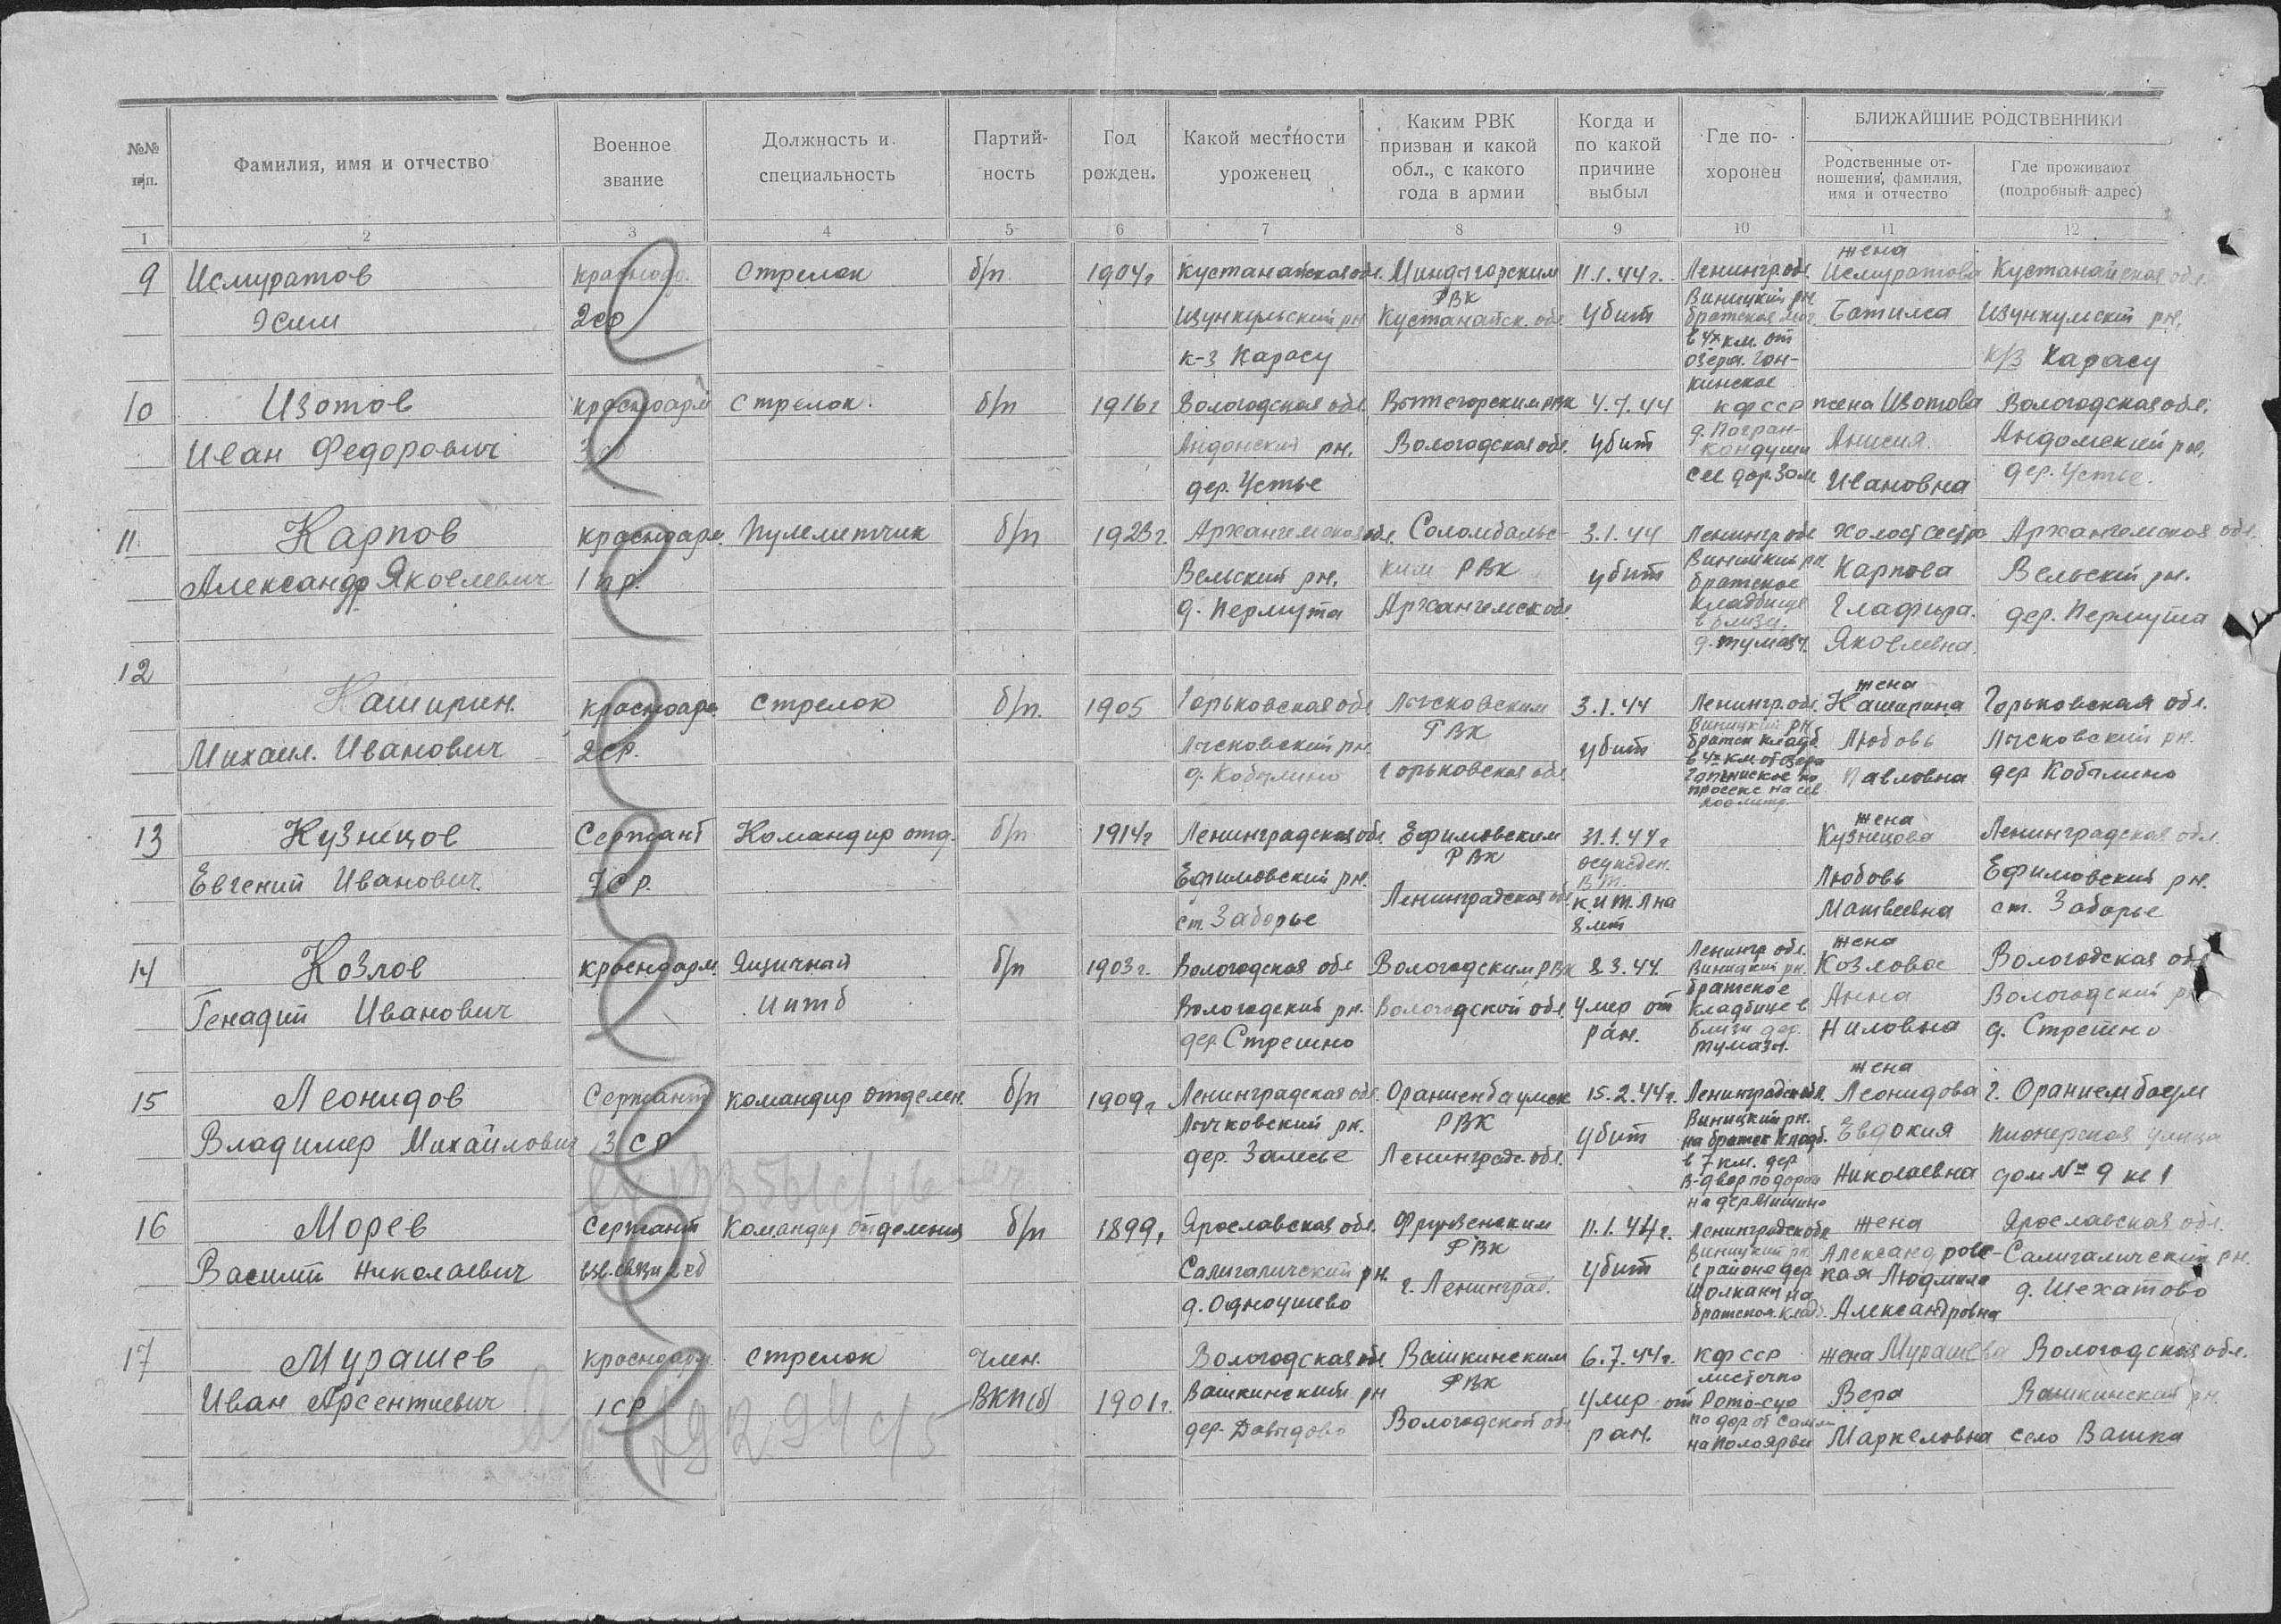 №№ п/п.
Фамилия, имя и отчество
Военное звание
Должность и специальность
Партий-ность
Год рожден.
Какой местности уроженец
Каким РВК призван и какой обл., с какого года в армии
Когда и по какой причине выбыл
Где по-хоронен
БЛИЖАЙШИЕ РОДСТВЕННИКИ
Родственные от-ношения, фамилия, имя и отчество
Где проживают (подробный адрес)
1 2 3 4 5 6 7 8 9 10 11 12
жена
9 Исмуратов Стрелок б/п 1904г Кустанайская обл. 11.1.44г. Ленингр обл. Исмуратова Кустанайская обл.
РВК Виницкий рн.
2ср Кустанайск. обл убит братская мог Батима рн,
в 4х км. от
к-з Карасу озера. Гон- к/з Карасу
кинское
10 Изотов красноарм стрелок. б/п 1916г Вологодская обл. Вытегорским рвк 4.7.44 КФССР жена Изотова Вологодская обл,
д. Погран-
Иван Федорович рн, Вологодская обл. убит кондуши Анисия Андомский рн,
дер. Устье Ивановна дер. Устье.
11 Карпов красноарм. Пулеметчик б/п 1923г. Архангельская обл. Соломбальс- 3.1.44 Ленингр обл Холост сестра Архангельская обл.
Виницкий рн
Александр Яковлевич 1 пр. Вельский рн, ким РВК убит братское Карпова Вельский рн.
кладбище
д. Пермута Архангельск обл. в близи. Глафира. дер. Пермута
Яковлевна.
12
жена
Каширин. красноарм стрелок б/п. 1905 Горьковская обл Лысковским 3.1.44 Ленингр.обл. Каширина Горьковская обл.
РВК Виницкий рн
Михаил. Иванович 2ср. Лысковский рн. убит братск кладб. Любовь Лысковский рн.
в 4х км от озера
д. Кобылино Горьковская обл Павловна дер Кобылино
просеке на сев
жена
13 Кузнецов Сержант Командир отд. б/п 1914г Ленинградская обл. Ефимовским 31.1.44г Кузнецова Ленинградская обл.
РВК осужден.
Евгений Иванович. 7ср. Ефимовский рн. В.Т. Любовь Ефимовский рн.
Ленинградская обл к. ИТЛ на
ст. Заборье 8 лет Матвеевна ст. Заборье
Ленингр обл. жена
14 Козлов красноарм. Ящичный б/п 1903г. Вологодская обл Вологодским РВК 8.3.44. Виницкий рн. Козлова Вологодская обл
братское
Генадий Иванович Вологодский рн. Вологодской обл. умер от кладбище в Анна Вологодский рн
дер Стрешно ран. близи дер. Ниловна д. Стрешно
жена
15 Леонидов Сержант командир отделен. б/п 1909г Ленинградская обл. Ораниенбаумск 15.2.44г. Ленинградск обл. Леонидова г. Ораниенбаум
Виницкий рн.
Владимер Михайлович 3ср Лычковский рн. РВК убит на братск кладб. Евдокия Пионерская улица
в 7 км. дер
дер. Залесье Ленинградс. обл. Николаевна дом № 9 кв 1
16 Морев Сержант Командир отделения б/п 1899г Ярославская обл. Фрунзенским 11.1.44г. Ленинградск обл жена Ярославская обл.
РВК Виницкий рн. Александровс-
Василий Николаевич взв. связи 2сб Салигаличский рн. убит в районе дер кая Людмила Салигаличский рн.
г. Ленинград.
д. Одноушево братском кладб. Александровна д. Шехатово
17 Мурашев красноарм стрелок Член. Вологодская обл Вашкинским 6.7.44г. КФССР жена Мурашева Вологодская обл.
РВК
Иван Арсентиевич 1ср ВКП(б) 1901г. Вашкинский рн умер от Вера Вашкинский рн.
дер. Давыдово Вологодской обл ран. Маркеловна село Вашки